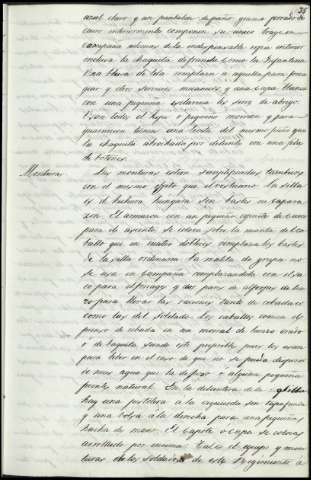 35
azul claro y un pantalon de paño grana forrado de
cuero interiormente componen su unico traje en
campaña ademas de la indispensable ropa interior
encima la chaqueta de franela como la Infanteria
Una blusa de tela remplaza a aquella para forra
gear y otros servicios mecanicos y una capa blanca
con una pequeña esclavina les sirve de abrigo.
Usan todos el kepis o pequeño morrion y para
guarnicion tienen una levita del mismo paño que
la chaqueta abrochada por delante con una fila
de botones.
Montura. Las monturas estan simplificadas tambien
con el mismo objeto que el vestuario. La silla
es de hechura hungara sin bastes ni capara
zon. El armazon con un pequeño cogin de cuero
para el asiento se coloca sobre la manta del ca
ballo que en cuatro dobleces remplaza los bastes
de la silla ordinaria. La maleta de grupa no
se usa en campaña remplazandola con el sa
co para el forrage y un par de alforjas de lien
zo para llevar las raciones tanto de caballo
como las del soldado. Los caballos comen el
pienso de cebada en un morral de lienzo crudo
ó de baqueta siendo este preferible pues les sirve
para beber en el caso de que no se pueda disponer
de mas agua que la de pozo o alguna pequeña
fuente natural. En la delantera de la silla
hay una pistolera á la izquierda sin tapafunda
y una bolsa á la derecha para una pequeña
hacha de mano. El capote o capa se coloca
arrollado por encima. Tal es el equipo y mon
turas de los soldados de este Regimiento a